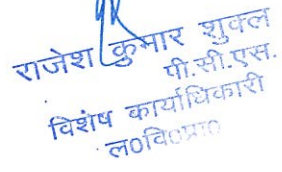 राजेश कुमार शुक्ल
पी.सी.एस.
विशेष कार्याधिकारी
ल०वि०प्रा०